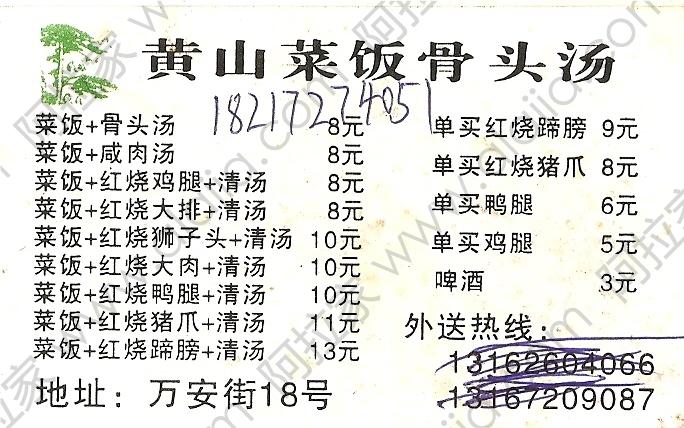 黄山菜饭骨头汤
18217274051
菜饭+骨头汤 8元
菜饭+咸肉汤 8元
菜饭+红烧鸡腿+清汤 8元
菜饭+红烧大排+清汤 8元
菜饭+红烧狮子头+清汤 10元
菜饭+红烧大肉+清汤 10元
菜饭+红烧鸭腿+清汤 10元
菜饭+红烧猪爪+清汤 11元
菜饭+红烧蹄膀+清汤 13元
地址：万安街18号
单买红烧蹄膀 9元
单买红烧猪爪 8元
单买鸭腿 6元
单买鸡腿 5元
啤酒 3元
外送热线：
13162604066
13167209087
阿拉家 www.alajia.com